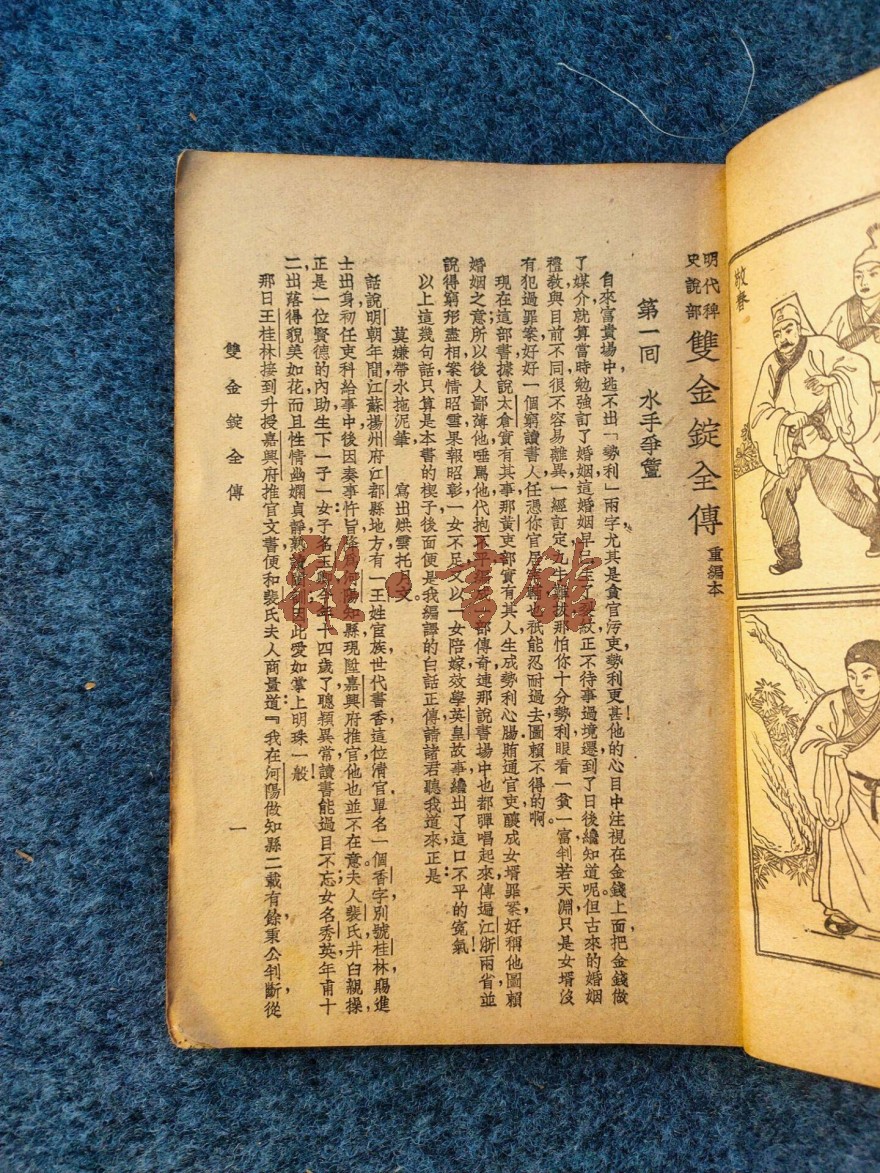 明代稗
史說部
雙金錠全傳
重編本
第一回　水手爭籃
自來富貴塲中，逃不出「勢利」兩字，尤其是貪官污吏，勢利更甚！他的心目中，注視在金錢上面，把金錢做
了媒介，就算當時勉強訂了婚姻，這婚姻早已生了
正不待事過境遷，到了日後，纔知道呢。但古來的婚姻
禮敎，與目前不同，很不容易離異，一經訂定，九牛難拔，那怕你十分勢利眼，看一貪一富，判若天淵，只是女壻沒
有犯過罪案，好好一個窮讀書人，任憑你官居
也祇能忍耐過去，圖賴不得的啊。
現在這部書，據說太倉實有其事，那黃吏部實有其人，生成勢利心腸，賄通官吏，釀成女壻罪案，好稱他圖賴
婚姻之意；所以後人鄙薄他，唾駡他，代抱不平，編成
部傳奇，連那說書塲中，也都彈唱起來，傳遍江浙兩省，並
說得窮形盡相，案情昭雪，果報昭彰，一女不足，又以一女陪嫁，效學英皇故事，纔出了這口不平的寃氣！
以上這幾句話，只算是本書的楔子，後面便是我編譯的白話正傳，請諸君聽我道來，正是：
莫嫌帶水拖泥筆，　寫出烘雲托月文。
話說明朝年間，江蘇揚州府江都縣地方，有一王姓官族，世代書香，這位淸官，單名一個香字，別號桂林，賜進
士出身，初任吏科給事中，後因奏事忤旨，降爲河陽知縣，現陞嘉興府推官，他也並不在意。夫人裴氏，井臼親操，
正是一位賢德的內助，生下一子一女：子名玉
今年十四歲了，聰穎異常，讀書能過目不忘；女名秀英，年甫十
二，出落得貌美如花，而且性情幽嫻貞靜，熟讀
因此愛如掌上明珠一般！
那日王桂林接到升授嘉興府推官文書，便和裴氏夫人商量道：『我在河陽做知縣，二載有餘，秉公判斷，從
雙金錠全傳
一